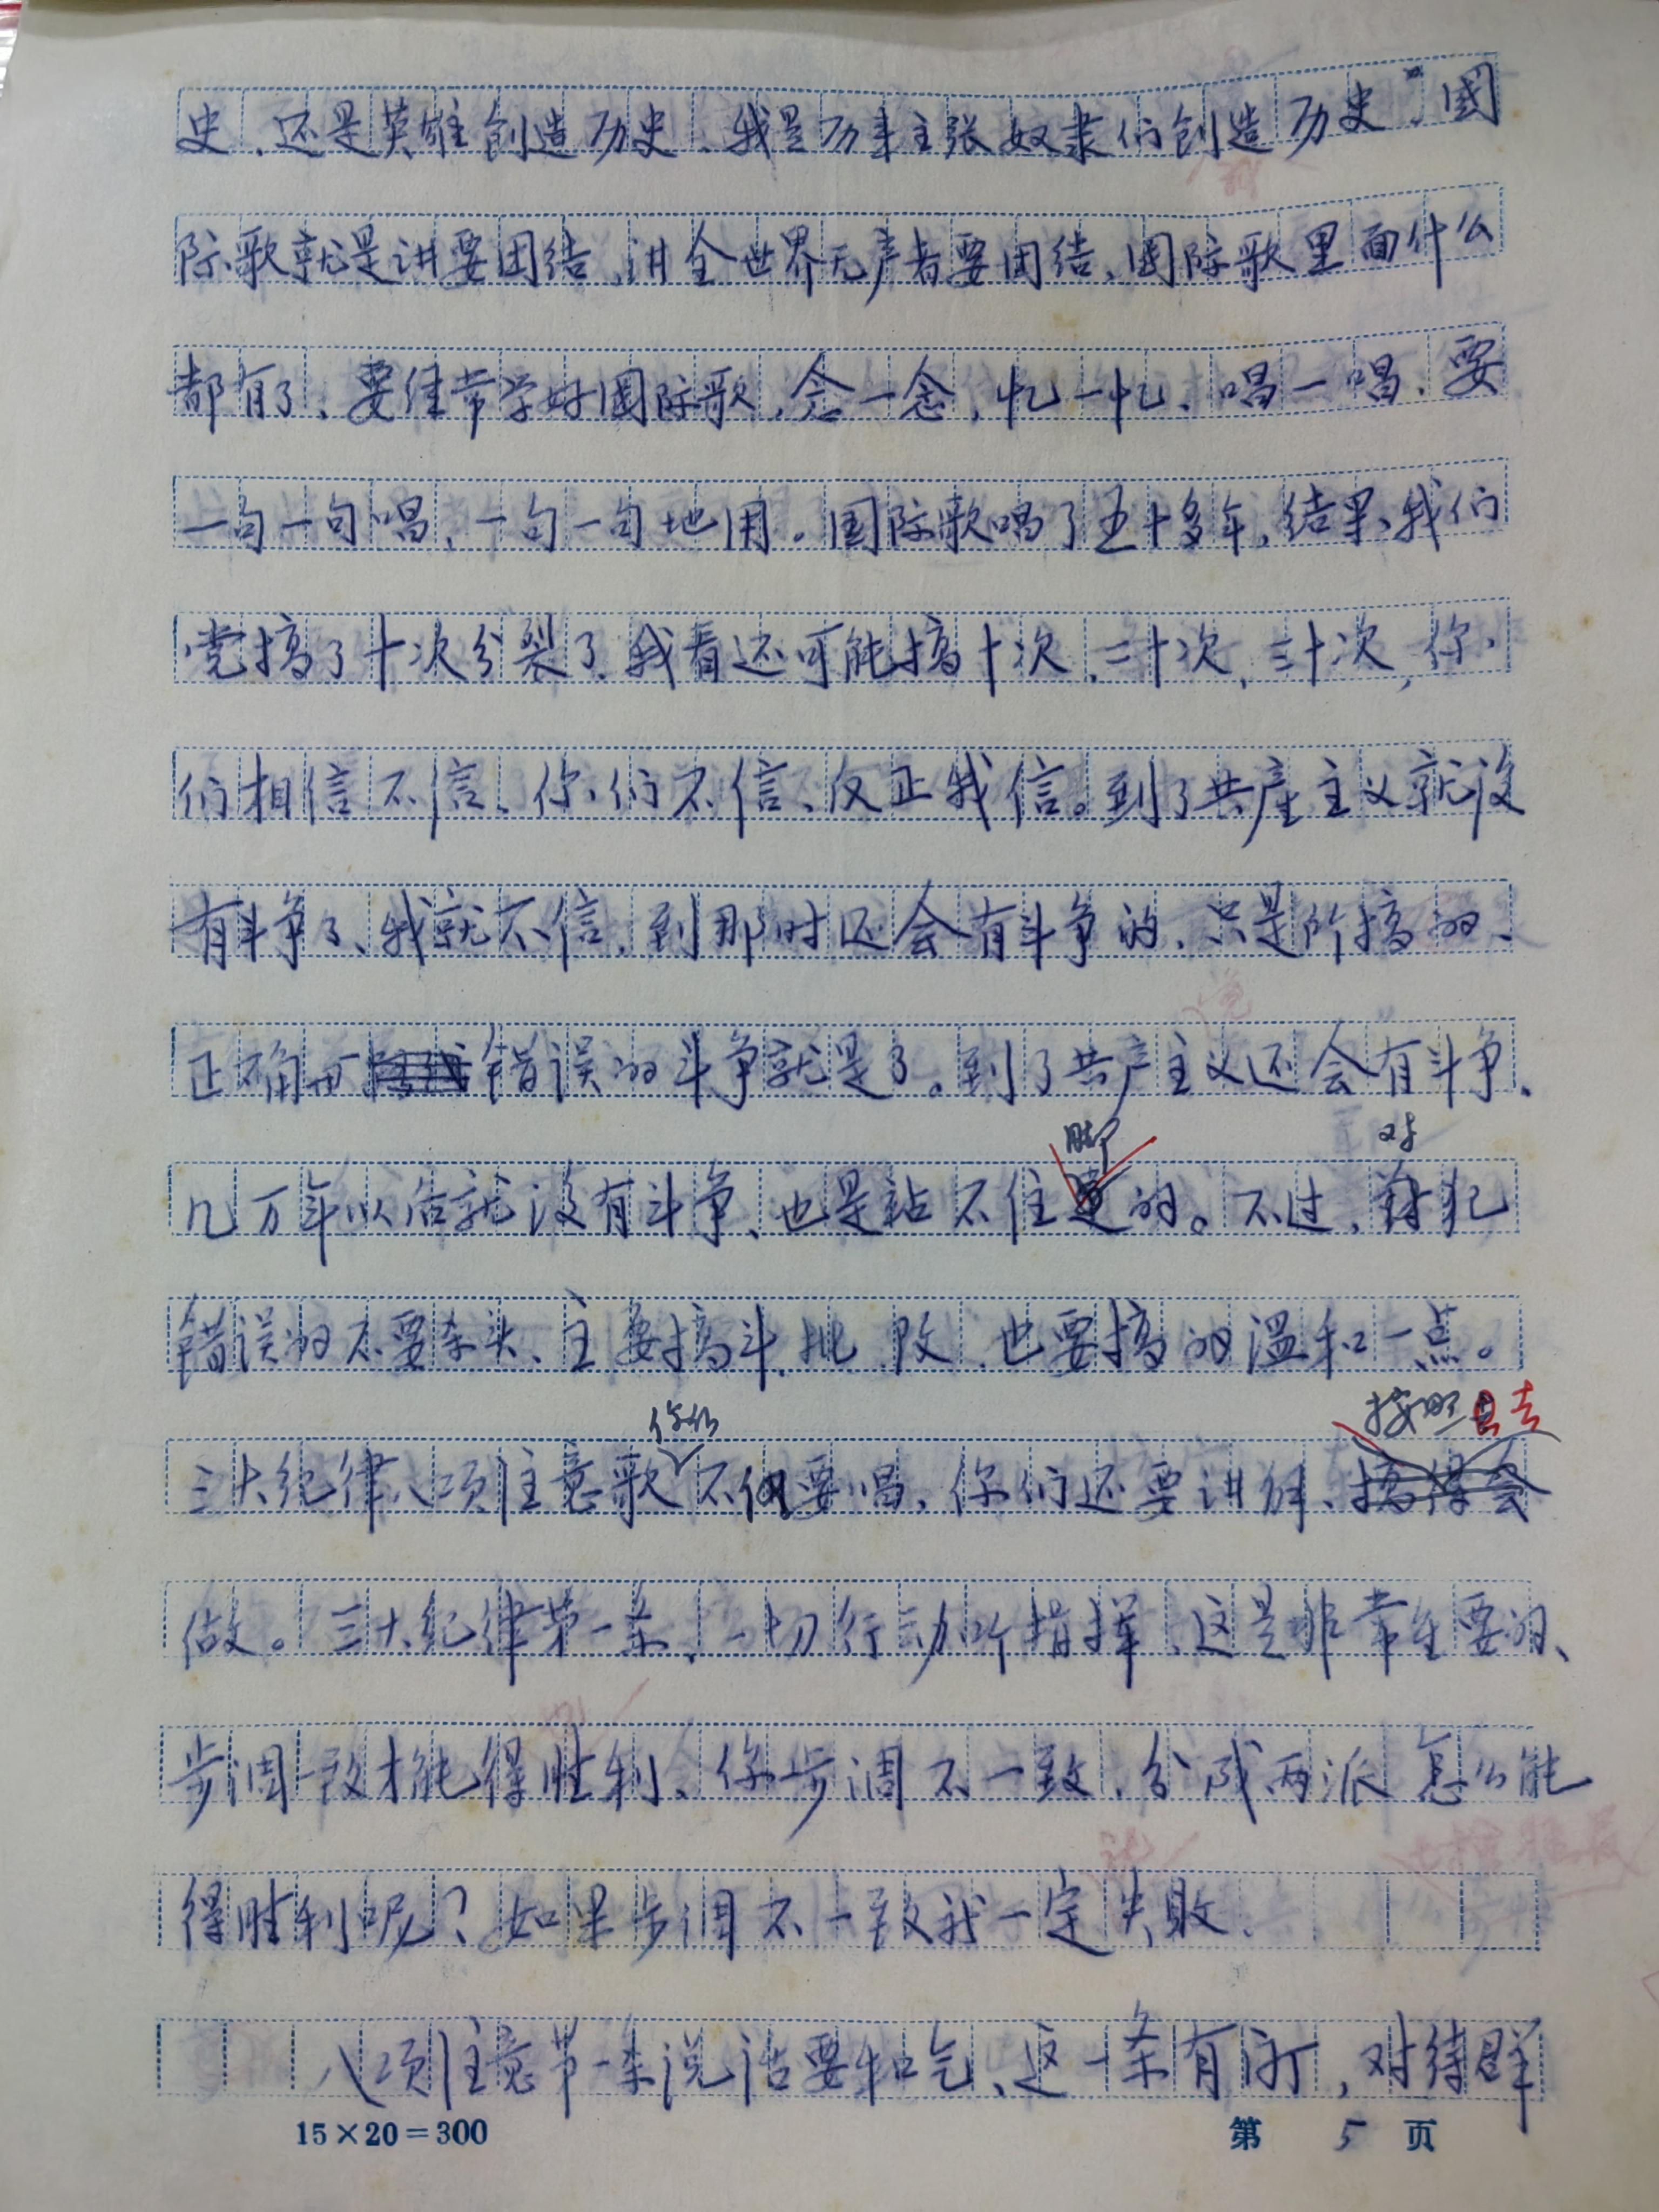 史、还是英雄创造历史、我是历来主张奴隶们创造历史”。國
际歌就是讲要团结、讲全世界无产者要团结、国际歌里面什么
都有了、要经常学好国际歌、念一念、忆一忆、唱一唱、要
一句一句唱、一句一句地用。国际歌唱了五十多年、结果、我们
党搞了十次分裂了、我看还可能搞十次、二十次、三十次，你
们相信不信、你们不信、反正我信。到了共产主义就没
有斗争了、我就不信、到那时还会有斗争的、只是所搞的、
正确与错误的斗争就是了。到了共产主义还会有斗争、
脚 对
几万年以后就没有斗争、也是站不住的。不过、犯
错误的不要杀头、主要搞斗、批、改、也要搞的温和一点。
你们 按照 去
三大纪律八项注意歌不但要唱、你们还要讲解、搞得会
做。三大纪律第一条、一切行动听指挥、这是非常重要的、
步调一致才能得胜利、你步调不一致、分成两派怎么能
得胜利呢？如果步调不一致我一定失败、
八项注意第一条说话要和气、这一条有门，对待群
15×20=300 第 5 页